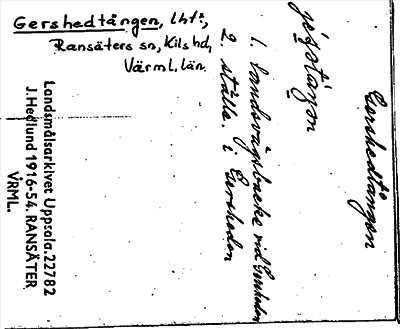 Gershedtången, lht?,
Ransäters sn, Kils hd,
Värml. län.
Gershedtången
jæ̀stàŋən
1. landsvägsbacke vid Gersheden
2. ställe i Gersheden
Landsmålsarkivet Uppsala. 22782
J. Hedlund 1916-54. RANSÄTER
VRML.